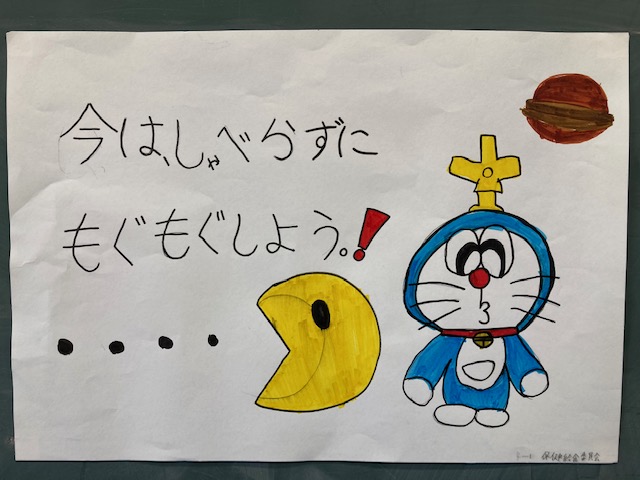 今は、しゃべらずに
もぐもぐしよう。!
保健給食委員会